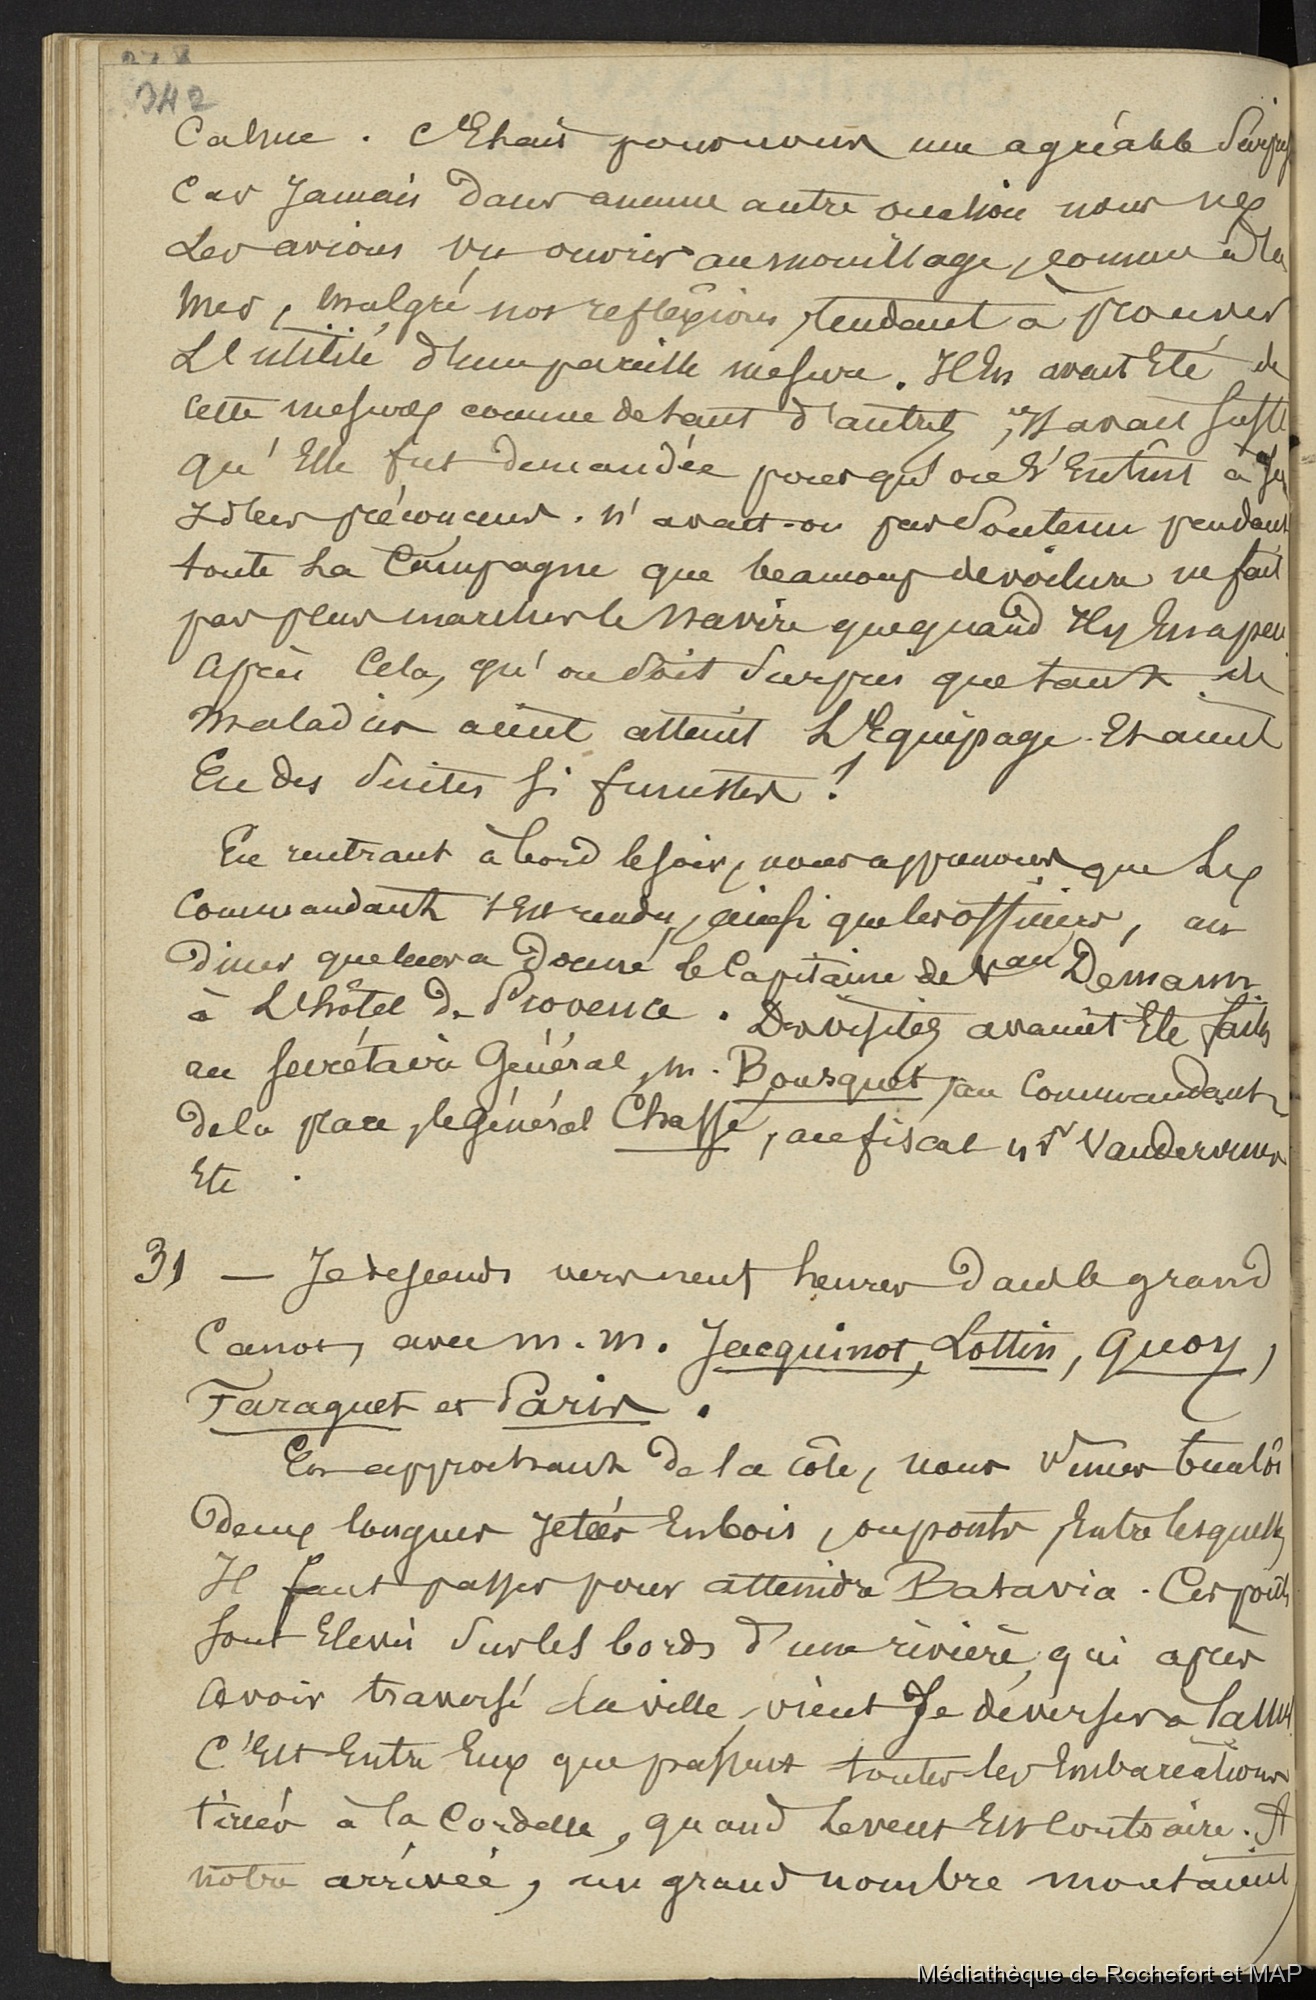 278
342
Calme. C'Etait pour nous une agréable Surprise
Car Jamais dans aucune autre occasion nous ne
Les avions vu ouvrir au mouillage, comme à la
Mer, Malgré nos reflexions, tendant à prouver
L'Utilité d'une pareille mesure. Il En avait Eté de
cette mesure comme de tant d'autres, Il avait suffi
qu'Elle fut demandée pour qu'on s'Entint à
Idées préconcues. N'avait-on pas Soutenu pendant
toute La Campagne que beaucoup de voilure ne fait
pas plus marcher le Navire que quand Il y En a peu
Après Cela, qu'on Soit Surpris que tant de
Maladies aient atteint L'Equipage Et aient
Eu des Suites si funestes!
En rentrant à bord le soir, nous apprenons que Le
Commandant s'Est rendu, ainsi que les officiers, au
Diner que leur a Donné le Capitaine de Vau Demann
à L'hôtel De Provence. Des visites avaient Eté faites
au Secrétaire Général, M. Bousquet, au Commandant
de la place, le Général Chassé, au fiscal Mr Vanderviner
Etc.
31 — Je descends vers neuf heures Dans le grand
Canot, avec M. M. Jacquinot, Lottin, Quoy,
Faraguet et Paris.
En approchant De la côte, nous Vimes bientôt
Deux longues Jetées En bois, ou ponts, Entre lesquels
Il faut passer pour atteindre Batavia. Ces ponts
Sont Elevés Sur les bords d'une rivière, qui après
Avoir traversé La ville, vient Se déverser à la mer
C'Est Entre Eux que passent toutes les Embarcations
tirées à la Cordelle, quand Le vent Est Contraire. A
notre arrivée, un grand nombre montaient
Médiathèque de Rochefort et MAP